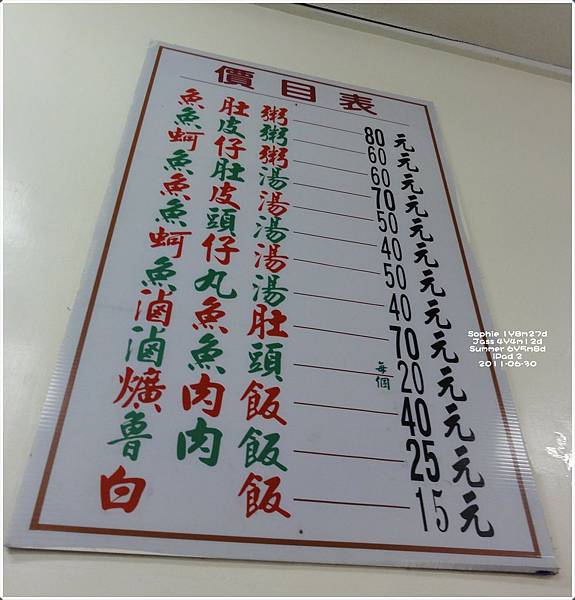 價目表
魚肚粥 80元
魚皮粥 60元
蚵仔粥 60元
魚肚湯 70元
魚皮湯 50元
魚頭湯 40元
蚵仔湯 50元
魚丸湯 40元
滷魚肚 70元
滷魚頭 每個 20元
爌肉飯 40元
魯肉飯 25元
白飯 15元
Sophie 1Y8m27d
Jass 4Y4m12d
Summer 6Y5m8d
iPad 2
2011-06-30